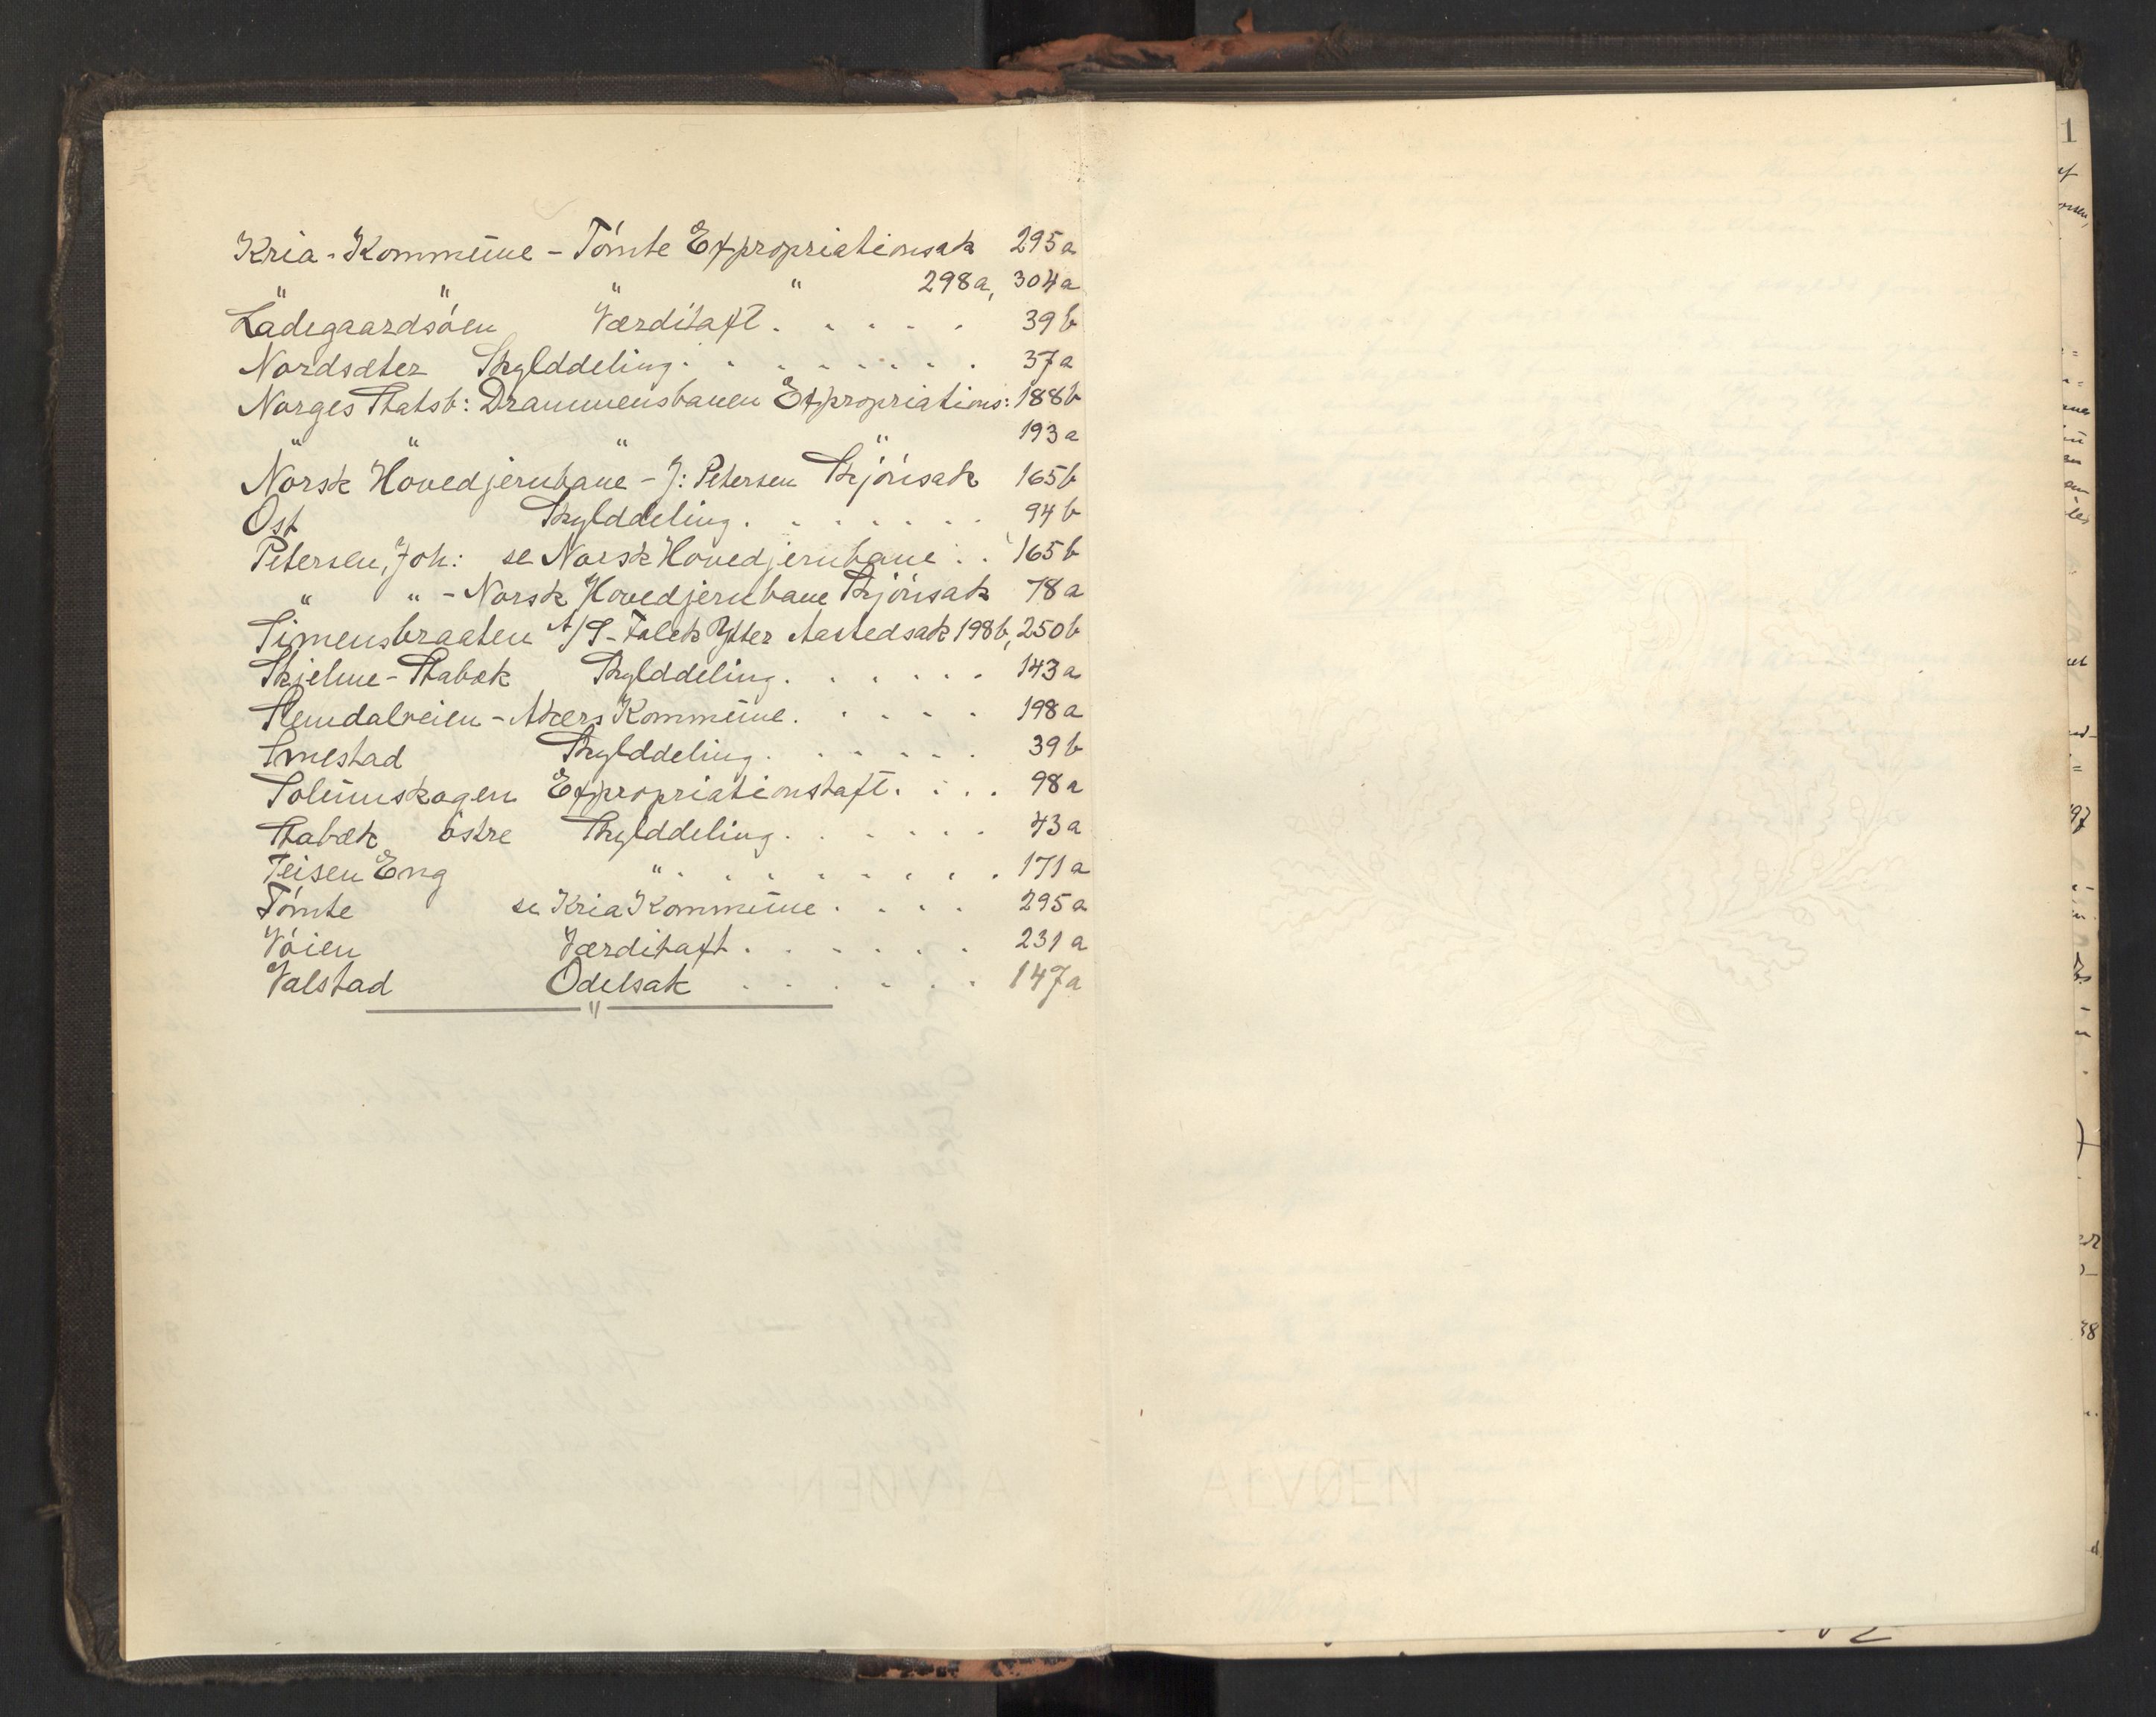 Kria. Kommune - Tömte Expropriationsak 295a
" " " " 298a, 304a
Ladegaardsöen Værditaxt. . . . . . 39b
Nordsæter Skylddeling. . . . . . . . 37a
Norges Statsb: Drammensbanen Expropriations: 188b
" " " " 193a
Norsk Hovedjernbane - J: Petersen Skjönsak 165b
Ost Skylddeling. . . . . . . 94b
Petersen, Joh: se Norsk Hovedjernbane . . 165b
" " - Norsk Hovedjernbane Skjönsak 78a
Simensbraaten A/S - Falck Ytter Aastedsak 198b, 250b
Skjelme - Stabæk Skylddeling. . . . . . 143a
Slemdalveien - Akers Kommune. . . . . 198a
Smestad Skylddeling. . . . . . 39b
Solumskogen Expropriationstaxt. . . . 98a
Stabæk östre Skylddeling. . . . . . 43a
Teisen Eng " . . . . . . . . . 171a
Tömte se Kria Kommune. . . . 295a
Vöien Værditaxt. . . . . . 231a
Valstad Odelsak . . . . . . 147a
"
ALVØEN